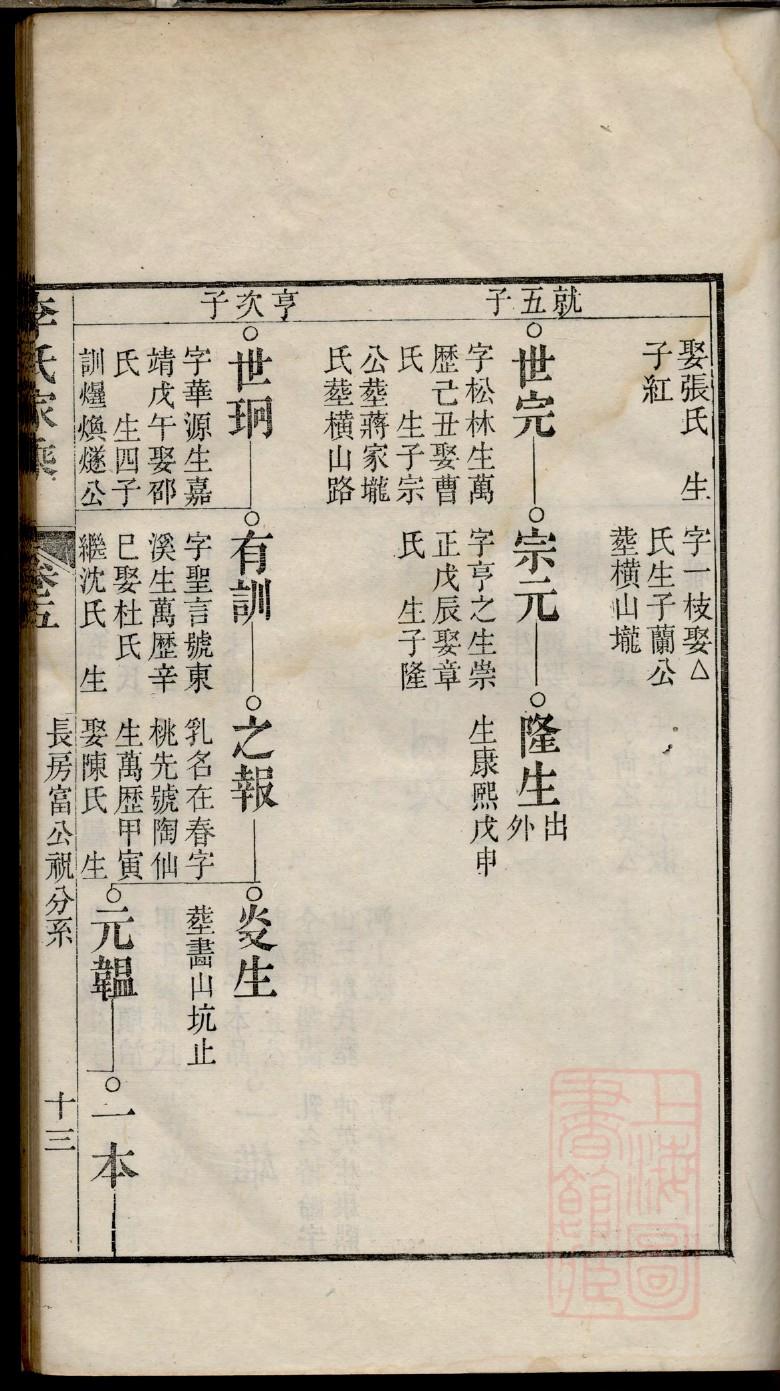 娶張氏 生
子紅
字一枝娶△
氏生子蘭公
塟橫山壠
就五子
世完
字松林生萬
歴己丑娶曹
氏 生子宗
公塟蔣家壠
氏塟橫山路
宗元
字亨之生崇
正戊辰娶章
氏 生子隆
隆生出外
生康熙戊申
亨次子
世珦
字華源生嘉
靖戊午娶邵
氏 生四子
訓煋煥燧公
有訓
字聖言號東
溪生萬歴辛
巳娶杜氏
繼沈氏 生
之報
乳名在春字
桃先號陶仙
生萬歴甲寅
娶陳氏 生
炎生
塟畵山坑止
元韞
一本
李氏家乘
卷五
長房富公祝分系
十三
上海圖
書館藏